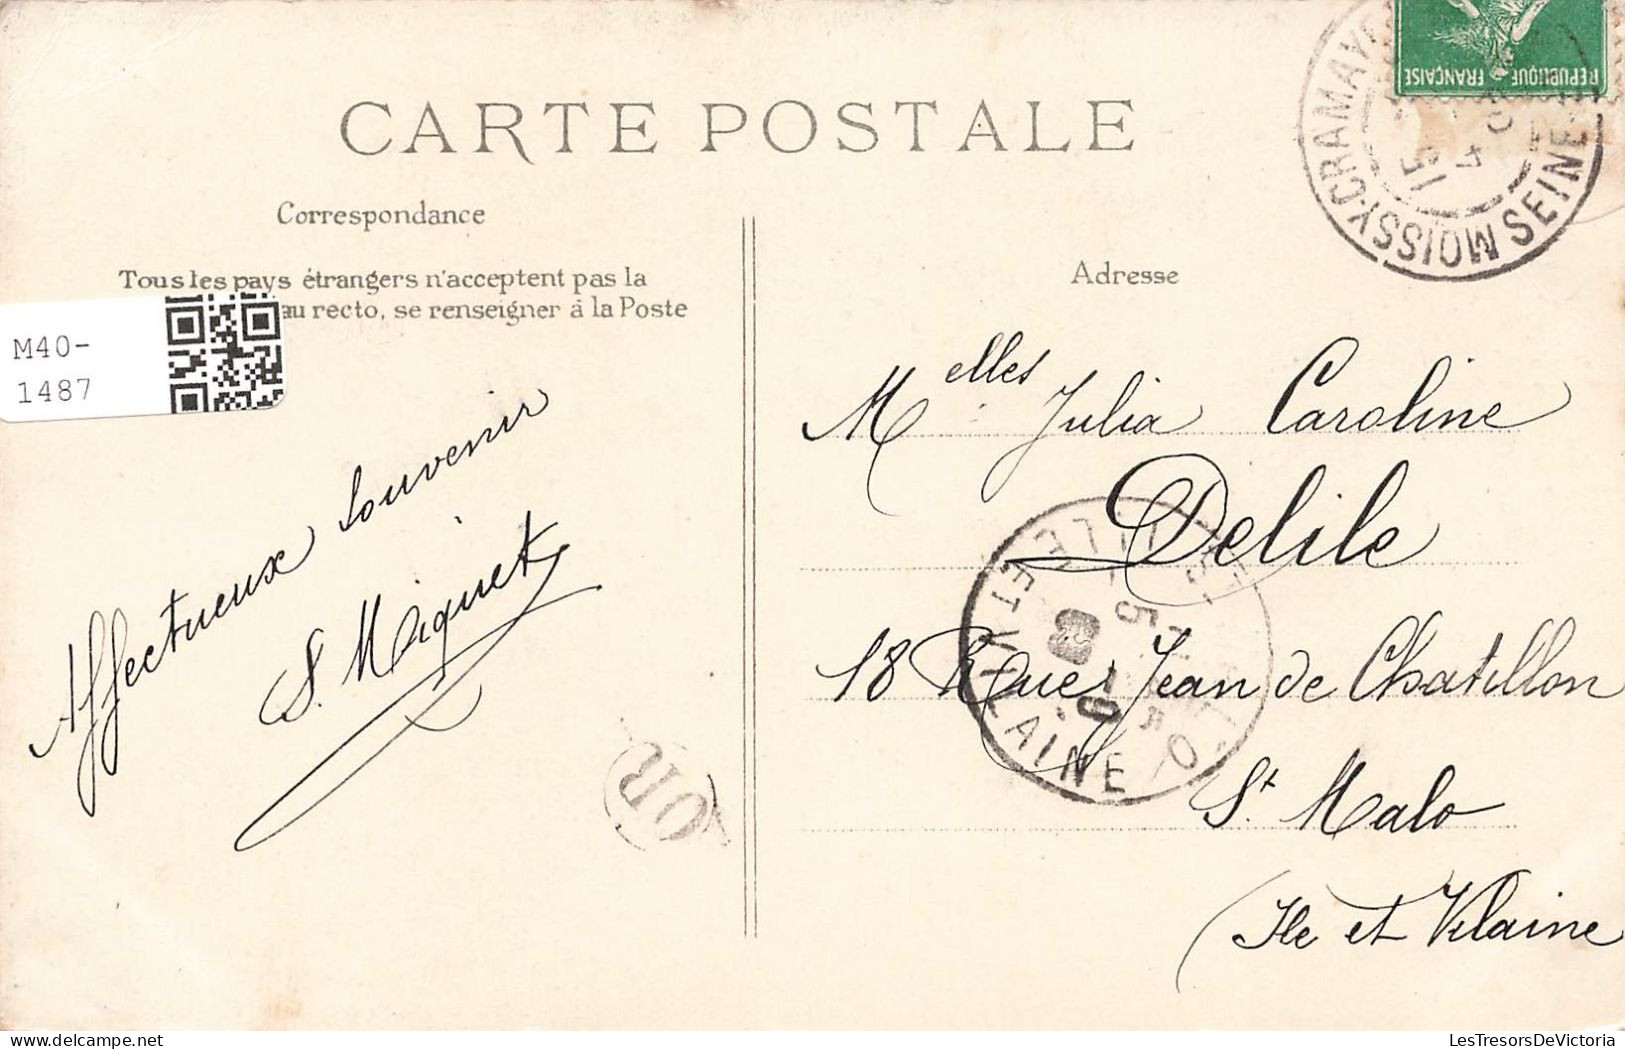 CARTE POSTALE
Correspondance
Tous les pays étrangers n'acceptent pas la
au recto, se renseigner à la Poste
M40-
1487
Affectueux souvenir
S. Miquet
OR
Adresse
REPUBLIQUE FRANÇAISE
MOISSY-CRAMAYE
SEINE
15
4
Melles Julia Caroline
Delile
18 Rue Jean de Chatillon
St Malo
(Ile et Vilaine
ILLE ET VILAINE
5
LesTresorsDeVictoria